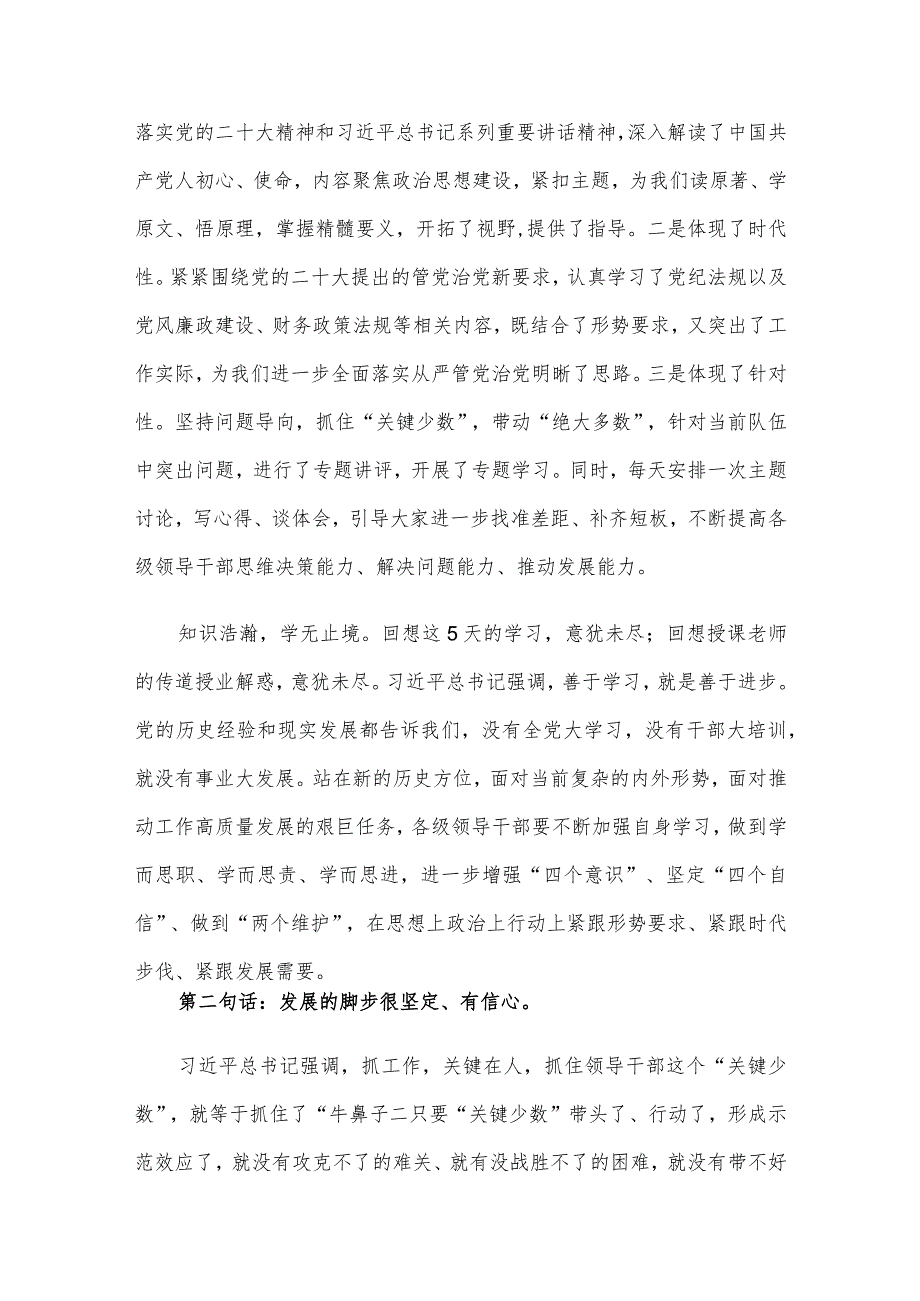 落实党的二十大精神和习近平总书记系列重要讲话精神,深入解读了中国共
产党人初心、使命，内容聚焦政治思想建设，紧扣主题，为我们读原著、学
原文、悟原理，掌握精髓要义，开拓了视野,提供了指导。二是体现了时代
性。紧紧围绕党的二十大提出的管党治党新要求，认真学习了党纪法规以及
党风廉政建设、财务政策法规等相关内容，既结合了形势要求，又突出了工
作实际，为我们进一步全面落实从严管党治党明晰了思路。三是体现了针对
性。坚持问题导向，抓住“关键少数”，带动“绝大多数”，针对当前队伍
中突出问题，进行了专题讲评，开展了专题学习。同时，每天安排一次主题
讨论，写心得、谈体会，引导大家进一步找准差距、补齐短板，不断提高各
级领导干部思维决策能力、解决问题能力、推动发展能力。
知识浩瀚，学无止境。回想这5天的学习，意犹未尽；回想授课老师
的传道授业解惑，意犹未尽。习近平总书记强调，善于学习，就是善于进步。
党的历史经验和现实发展都告诉我们，没有全党大学习，没有干部大培训，
就没有事业大发展。站在新的历史方位，面对当前复杂的内外形势，面对推
动工作高质量发展的艰巨任务，各级领导干部要不断加强自身学习，做到学
而思职、学而思责、学而思进，进一步增强“四个意识”、坚定“四个自
信”、做到“两个维护”，在思想上政治上行动上紧跟形势要求、紧跟时代
步伐、紧跟发展需要。
第二句话：发展的脚步很坚定、有信心。
习近平总书记强调，抓工作，关键在人，抓住领导干部这个“关键少
数”，就等于抓住了“牛鼻子二只要“关键少数”带头了、行动了，形成示
范效应了，就没有攻克不了的难关、就有没战胜不了的困难，就没有带不好